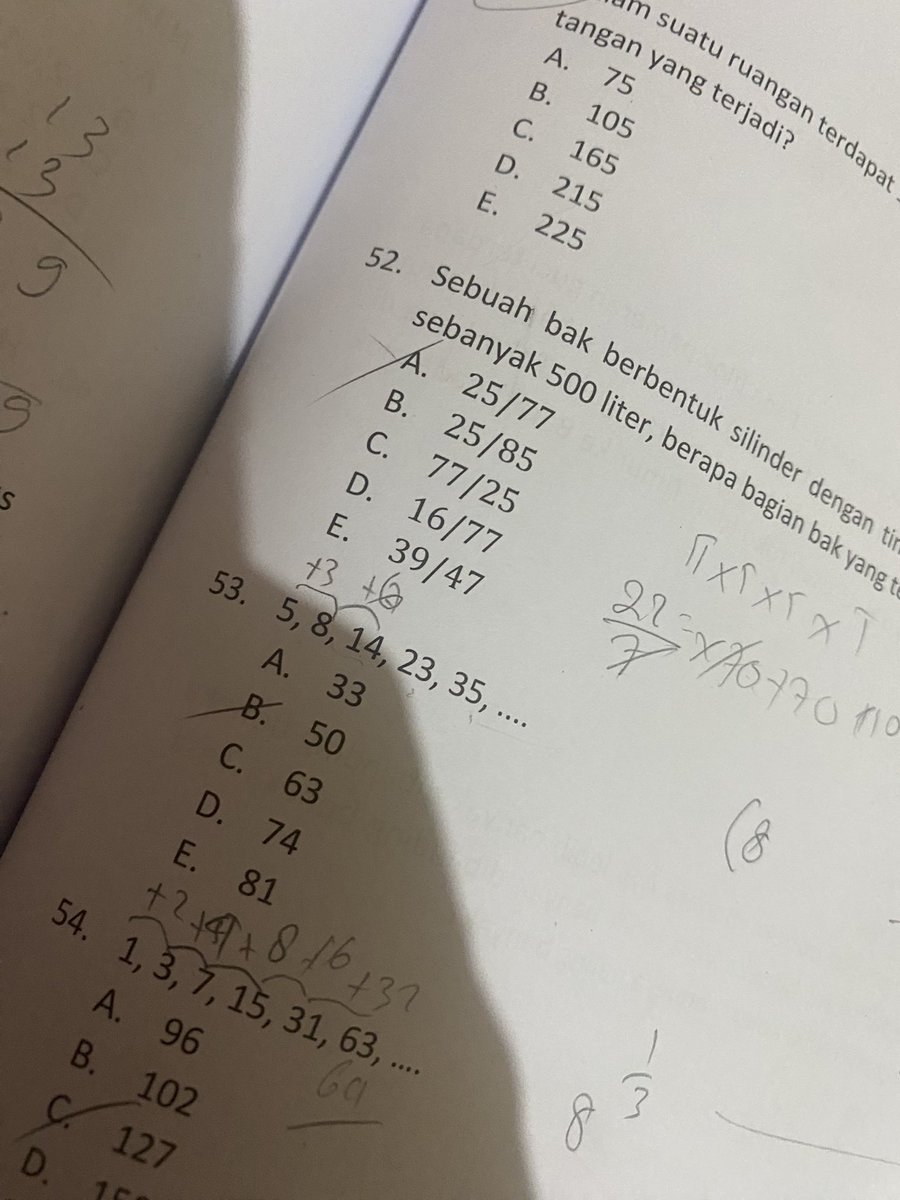 suatu ruangan terdapat
tangan yang terjadi?
A. 75
B. 105
C. 165
D. 215
E. 225
52. Sebuah bak berbentuk silinder dengan
sebanyak 500 liter, berapa bagian bak yang
A. 25/77
B. 25/85
C. 77/25
D. 16/77
E. 39/47
+3 +6
53. 5, 8, 14, 23, 35, ....
A. 33
B. 50
C. 63
D. 74
E. 81
+2 +4 + 8 16 +32
54. 1, 3, 7, 15, 31, 63, ....
A. 96
B. 102
C. 127
D.
13
13
9
9
s
22
7
(8
8 1/3